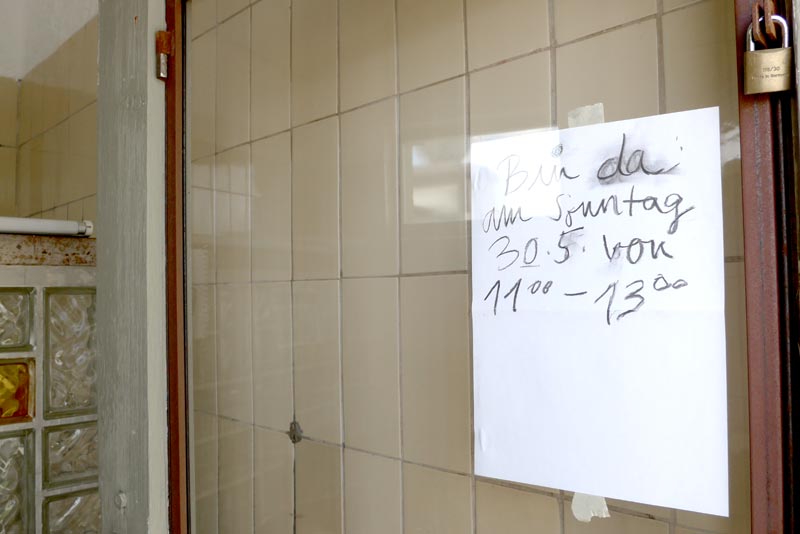 Bin da:
am Sonntag
30.5. von
11⁰⁰ – 13⁰⁰